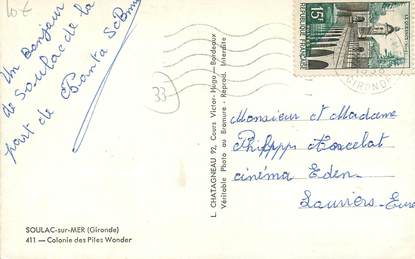 10 €
Un bonjour
de Soulac de la
part de
33
15F
POSTES
GIRONDE
L. CHATAGNEAU 92, Cours Victor-Hugo — Bordeaux
Véritable Photo au Bromure - Reprod. Interdite
Monsieur et Madame
Philippe
cinéma Eden
Louviers-Eure
SOULAC-sur-MER (Gironde)
411 — Colonie des Piles Wonder